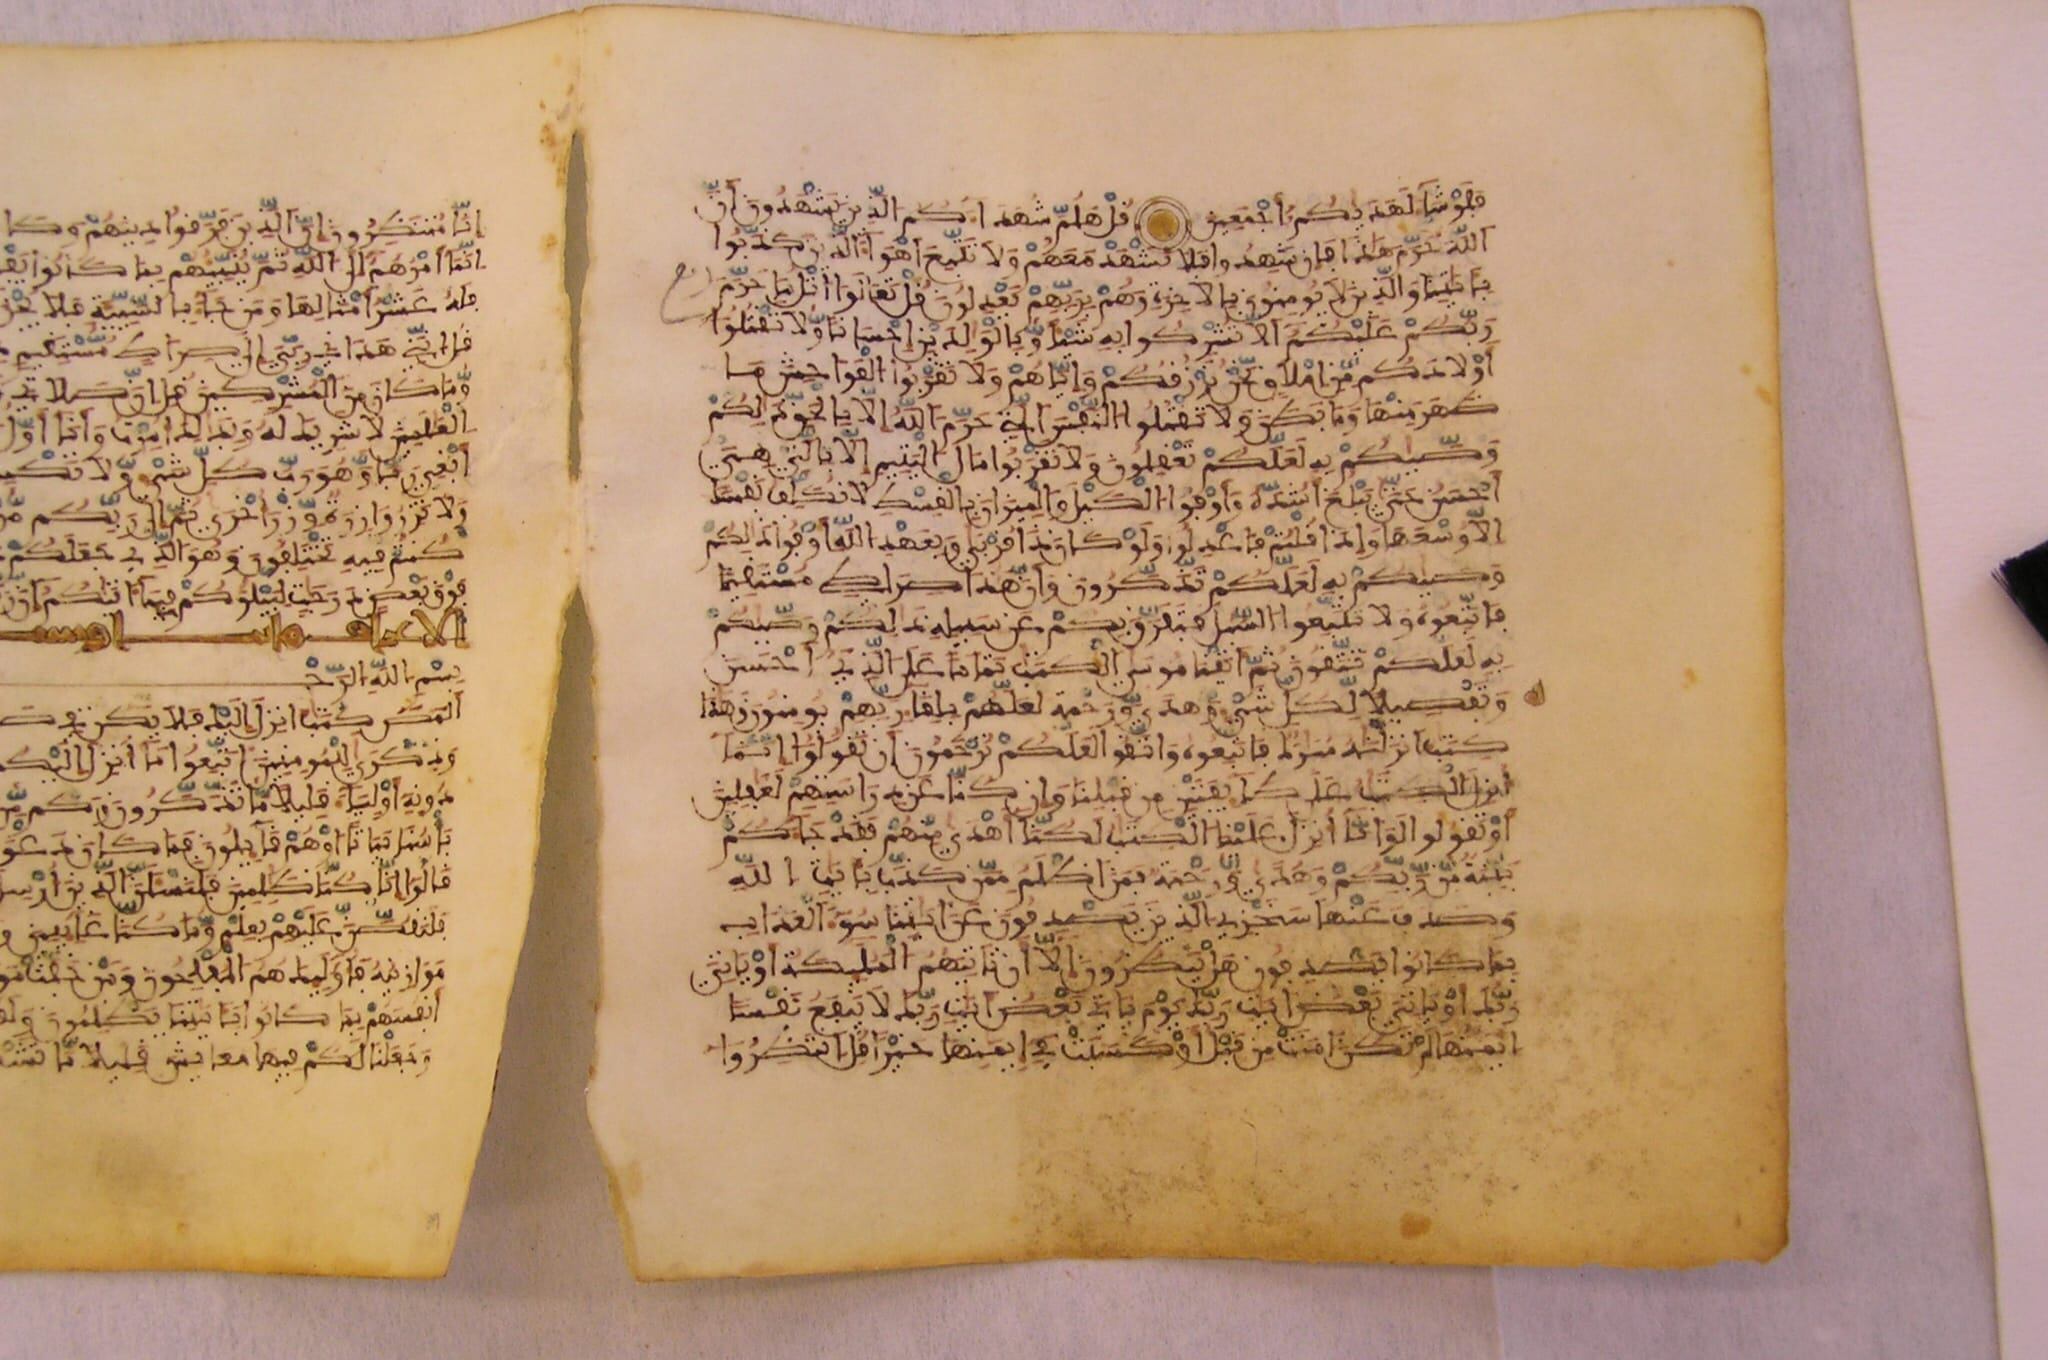 فلو شا لهديكم أجمعين قل هلم شهدا كم الذين يشهدون أن
الله حرم هذا فإن شهدوا فلا تشهد معهم ولا تتبع أهوا الذين كذبوا
بـايتنا والذين لا يومنون بالاخرة وهم بربهم يعدلون قل تعالوا اتل ما حرم
ربكم عليكم ألا تشركوا به شيا وبالولدين إحسانا ولا تقتلوا
أولادكم من املق نحن نرزقكم وإياهم ولا تقربوا الفواحش ما
ظهر منها وما بطن ولا تقتلوا النفس التي حرم الله إلا بالحق ذلكم
وصيكم به لعلكم تعقلون ولا تقربوا مال اليتيم إلا بالتي هي
أحسن حتى يبلغ أشده وأوفوا الكيل والميزان بالقسط لا نكلف نفسا
إلا وسعها وإذا قلتم فاعدلوا ولو كان ذا قربى وبعهد الله أوفوا ذلكم
وصيكم به لعلكم تذكرون وأن هذا صراطي مستقيما
فاتبعوه ولا تتبعوا السبل فتفرق بكم عن سبيله ذلكم وصيكم
به لعلكم تتقون ثم اتينا موسى الكتب تماما على الذي أحسن
وتفصيلا لكل شي وهدى ورحمة لعلهم بلقا ربهم يومنون وهذا
كتب انزلنه مبرك فاتبعوه واتقوا لعلكم ترحمون أن تقولوا إنما
أنزل الكتب على طايفتين من قبلنا وإن كنا عن دراستهم لغفلين
أو تقولوا لو انا أنزل علينا الكتب لكنا أهدى منهم فقد جاكم
بينة من ربكم وهدى ورحمة فمن اظلم ممن كذب بـايت الله
وصدف عنها سنجزي الذين يصدفون عن ايتنا سو العذاب
بما كانوا يصدفون هل ينظرون إلا أن تاتيهم المليكة أو ياتي
ربك أو ياتي بعض ايت ربك يوم ياتي بعض ايت ربك لا ينفع نفسا
إيمنها لم تكن امنت من قبل أو كسبت في إيمنها خيرا قل انتظروا
إنا منتظرون إن الذين فرقوا دينهم وكا
إنما أمرهم إلى الله ثم ينبيهم بما كانوا يفـ
فله عشر أمثالها ومن جا بالسيية فلا يجز
قل إنني هديني ربي إلى صراط مستقيم
وما كان من المشركين قل إن صلاتي
العلمين لا شريك له وبذلك امرت وأنا أول
أبغي ربا وهو رب كل شي ولا تكسب
ولا تزر وازرة وزر أخرى ثم إلى ربكم مر
كنتم فيه تختلفون وهو الذي جعلكم
فوق بعض درجت ليبلوكم في ما اتيكم إن
الاعراف
بسم الله الرحـ
المص كتب انزل إليك فلا يكن في صـ
وذكرى للمومنين اتبعوا ما أنزل إليكم
دونه أوليا قليلا ما تذكرون وكم من
بأسنا بيتا أو هم قايلون فما كان دعو
قالوا إنا كنا ظلمين فلنسلن الذين أرسل
فلنقصن عليهم بعلم وما كنا غايبين و
موازينه فأوليك هم المفلحون ومن خفت مو
أنفسهم بما كانوا بـايتنا يظلمون ولقـ
وجعلنا لكم فيها معايش قليلا ما تشـ